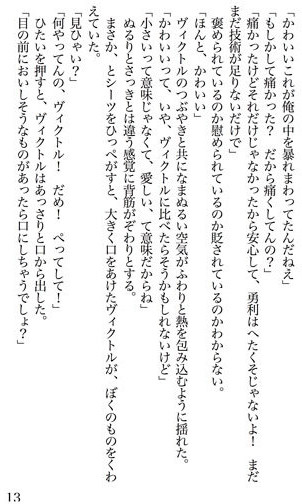 「かわいいこれが俺の中を暴れまわってたんだねえ」
「もしかして痛かった？　だから痛くしてんの？」
「痛かったけどそれだけじゃなかったから安心して、勇利はへたくそじゃないよ！　まだ
まだ技術が足りないだけで」
褒められているのか慰められているのか貶されているのかわからない。
「ほんと、かわいい」
ヴィクトルのつぶやきと共になまぬるい空気がふわりと熱を包み込むように揺れた。
「かわいいって、いや、ヴィクトルに比べたらそうかもしれないけど」
「小さいって意味じゃなくて、愛しい、て意味だからね」
ぬるりとさっきとは違う感覚に背筋がぞわりとする。
まさか、とシーツをひっぺがすと、大きく口をあけたヴィクトルが、ぼくのものをくわ
えていた。
「見ひゃい？」
「何やってんの、ヴィクトル！　だめ！　ぺってして！」
ひたいを押すと、ヴィクトルはあっさりと口から出した。
「目の前においしそうなものがあったら口にしちゃうでしょ？」
13